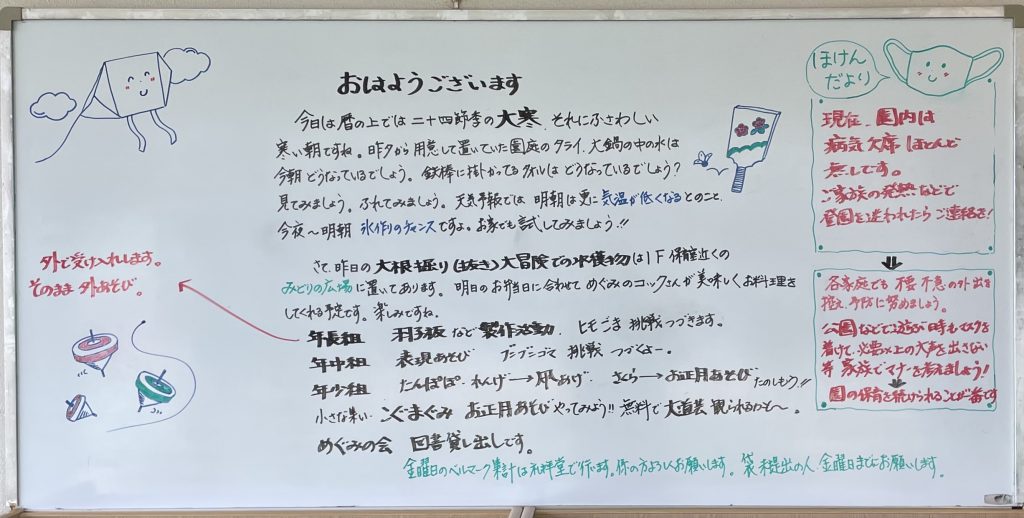 おはようございます
今日は暦の上では二十四節季の大寒、それにふさわしい
寒い朝ですね。昨夕から用意して置いていた園庭のタライ、大鍋の中の水は
今朝どうなっているでしょう。鉄棒に掛かってるタオルはどうなっているでしょう?
見てみましょう。ふれてみましょう。天気予報では明朝は更に気温が低くなるとのこと、
今夜〜明朝 氷作りのチャンスですよ。お家でも試してみましょう!!
さて、昨日の大根掘り(抜き)大冒険での収穫物は1F 保健室近くの
みどりの広場に置いてあります。明日のお弁当に合わせてめぐみのコックさんが美味しくお料理を
してくれる予定です。楽しみですね。
年長組 羽子板など製作活動、ヒモごま挑戦つづきます。
年中組 表現あそび ゴマ挑戦つづくよー。
年少組 たんぽぽ・れんげ→凧あげ、さくら→お正月あそび たのしもう!!
小さな集い こぐまぐみ お正月あそびやってみよう!! 無料で 観られるかも〜。
めぐみの会 図書貸し出しです。
金曜日のベルマーク集計は礼拝堂で行います。係の方よろしくお願いします。袋未提出の人 金曜日までにお願いします。
外で受け入れします。
そのまま外あそび。
ほけん
だより
現在、園内は
病気欠席ほとんど
無しです。
ご家族の発熱などで
登園を迷われたらご連絡を!
各家庭でも不要不急の外出を
控え予防に努めましょう。
公園などで遊ぶ時もマスクを
着けて、必要以上の大声を出さない
等 家族でマナーを考えましょう!
園の保育を続けられることが一番です